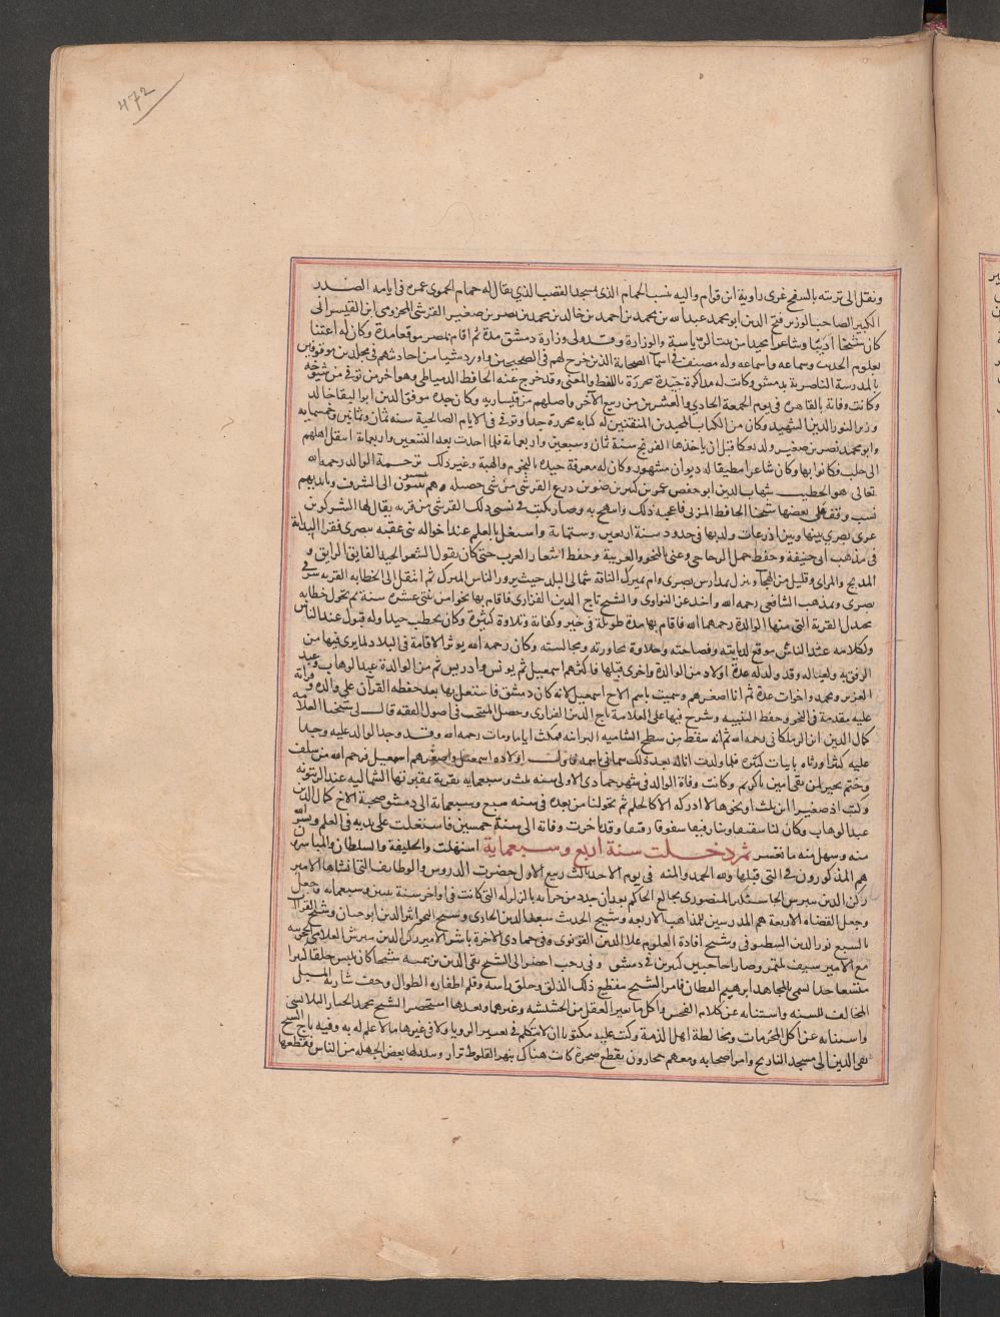 ٤٧٢
ونقل الى تربته بالسفح غربى زاوية ابن قوام واليه ينسب الحمام الذى بمسجد القصب الذي يقال له حمام الحموى عمره فى ايامه الصدر
الكبير الصاحب الوزير فتح الدين ابو محمد عبد الله بن محمد بن احمد بن خالد بن محمد بن نصر بن صغير القرشى المخزومى ابن القيسرانى
كان شيخا أديبًا وشاعرا مجيدا من بيت الرياسة والوزارة وقد ولى وزارة دمشق مدة ثم اقام بمصر موقعا مدة وكان له اعتنا
بعلوم الحديث وسماعه واسماعه وله مصنف فى اسما الصحابة الذين خرج لهم فى الصحيحين واورد شيا من احاديثهم فى مجلدين موقوفين
بالمدرسة الناصرية بدمشق وكانت له مذاكرة جيدة محررة باللفظ والمعنى وقد خرج عنه الحافظ الدمياطى وهو اخر من توفى من شيوخه
وكانت وفاته بالقاهرة فى يوم الجمعة الحادي والعشرين من ربيع الآخر واصلهم من قيسارية وكان جده موفق الدين ابو البقا خالد
وزير النور الدين الشهيد وكان من الكتاب المجيدين المتقنين له كتابة محررة جدا وتوفى فى الايام الصالحية سنه ثمان وثمانين وخمسمايه
وابو محمد نصر بن صغير ولد بعكا قبل ان ياخذها الفرنج سنة ثمان وسبعين واربعماية فلما اخذت بعد التسعين واربعماية انتقل اهلهم
الى حلب فكانوا بها وكان شاعرا مطبقا له ديوان مشهور وكان له معرفة جيده بالنجوم والهيئة وغير ذلك ترجمة الوالد رحمه الله
تعالى هو الخطيب شهاب الدين ابو حفص عمر بن كثير بن ضو بن درع القرشى من بنى حصيله وهم ينتسبون الى الشرف وبايديهم
نسب وقف على بعضها شيخنا الحافظ المزى فاعجبه ذلك وابتهج به وصار يكتب فى نسبى ذلك القرشى من قرية يقال لها الشركوين
غربى بصرى بينها وبين اذرعات ولد بها فى حدود سنة اربعين وستماية واشتغل بالعلم عند اخواله بنى عقبه ببصرى فقرا البداية
فى مذهب ابى حنيفة وحفظ جمل الزجاجى وعنى بالنحو والعربية وحفظ اشعار العرب حتى كان يقول الشعر الجيد الفايق الرايق فى
المديح والمراثى وقليل من الهجا ونزل بمدارس بصرى وام بمبرك الناقة شمالى البلد حيث يزور الناس المبرك ثم انتقل الى الخطابه القريه شرقى
بصرى وتمذهب الشافعى رحمه الله واخذ عن النواوى والشيخ تاج الدين الفزارى فاقام بها نحوا من ثنتى عشرة سنة ثم تحول خطابه
بمجدل القرية التى منها الوالدة رحمهما الله فاقام بها مدة طويلة فى خير وكفاية وتلاوة كثيرة وكان يخطب جيدا وله قبول عند الناس
ولكلامه عند الناس موقع لديانته وفصاحته وحلاوة محاورته ومجالسته وكان رحمه الله يوثر الاقامة فى البلاد لما يرى فيها من
الرفق به ولعياله وقد ولد له عدة اولاد من الوالدة واخرى قبلها فاكثرهم اسمعيل ثم يونس وادريس ثم من الوالدة عبد الوهاب وعبد
العزيز ومحمد واخوات عدة ثم انا اصغرهم وسميت باسم الاخ اسمعيل لانه كان بدمشق فاشتغل بها بعد حفظه القرآن على والده وقراته
عليه مقدمة فى النحو وحفظ التنبيه وشرح فيها على العلامة تاج الدين الفزارى وحصل المنتخب فى اصول الفقه قال لى شيخنا العلامة
كمال الدين ابن الزملكانى رحمه الله ثم انه سقط من سطح الشاميه البرانيه فمكث اياما ومات رحمه الله وقد وجد الوالد عليه وجدا
عليه كثيرا ورثاه بابيات كثيرة فلما ولدت انا له بعد ذلك سمانى باسمه فاول اولاده اسمعيل واصغرهم اسمعيل فرحم الله من سلف
وختم بخير لمن بقى امين ياكريم وكانت وفاة الوالد فى شهر جمادى الاولى سنه ثلث وسبعمايه بقرية بمقبرتها الشماليه عند الزيتونه
وكنت اذ صغيرا ابن ثلث او نحوها لا ادركه الا كالحلم ثم تحولنا من بعده فى سنه سبع وسبعماية الى دمشق صحبة الاخ كمال الدين
عبد الوهاب وكان لنا شقيقا وبنا رفيقا شفوقا وقد تاخرت وفاته الى سنة خمسين فاشتغلت على يديه فى العلم ويسر الله
منه وسهل منه ما تعسر ثم دخلت سنة اربع وسبعماية استهلت والخليفة والسلطان والمباشرون
هم المذكورون فى التى قبلها ولله الحمد والمنه فى يوم الاحد ثالث ربيع الاول حضرت الدروس والوظايف التى انشاها الامير
ركن الدين بيبرس الجاشنكير المنصورى بجامع الحاكم بعد ان جدد من خرابه بالزلزله التى كانت فى اواخر سنة ثنتين وسبعمايه وجعل
وجعل القضاه الاربعة هم المدرسين للمذاهب الاربعه وشيخ الحديث سعد الدين الحارثى وشيخ النحو اثير الدين ابو حيان وشيخ القراات
بالسبع نور الدين الشطنوفى وشيخ افادة العلوم علا الدين القونوى وفى جمادى الآخرة باشر الامير ركن الدين بيبرس العلامى الحجوبيه
مع الامير سيف بكتمر وصارا حاجبين كبيرين فى دمشق وفى رجب احضر الى الشيخ تقى الدين بن تيميه شيخا كان يلبس دلقا كبيرا
متسعا جدا يسمى بالمجاهد ابرهيم القطان فامر الشيخ بتقطيع ذلك الدلق وحلق راسه وقلم اظفاره الطوال وحف شاربه المسبل
المخالف للسنه واستتابه عن كلام الفحش واكل ما يغير العقل من الحشيشه وغيرها وبعدها استحضر الشيخ محمد الخباز البلاسى
واستتابه عن اكل المحرمات ومخالطة اهل الذمة وكتب عليه مكتوبا ان لا يتكلم فى تعبير الرويا ولا فى غيرها مما لا علم له به وفيه راح الشيخ
تقى الدين الى مسجد النارنج وامر اصحابه ومعهم حجارون بقطع صخرة كانت هناك بنهر القلوط تزار وينذر لها بعض الجهله من الناس فقطعها